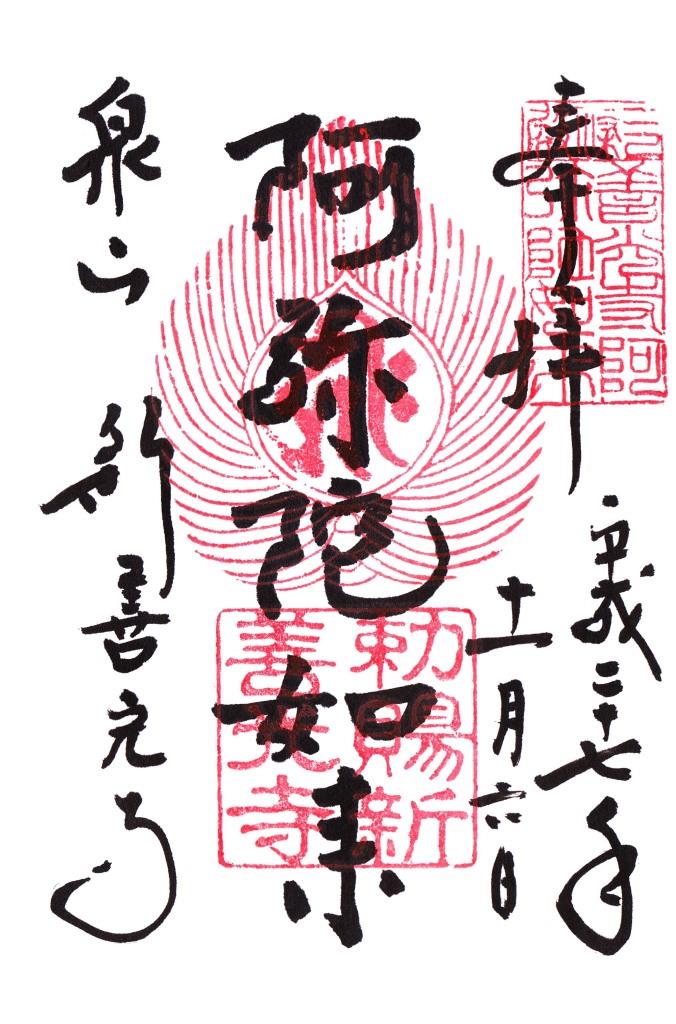 奉拝
平成二十七年
十一月六日
阿弥陀如来
泉山 新善光寺
勅賜新
善光寺